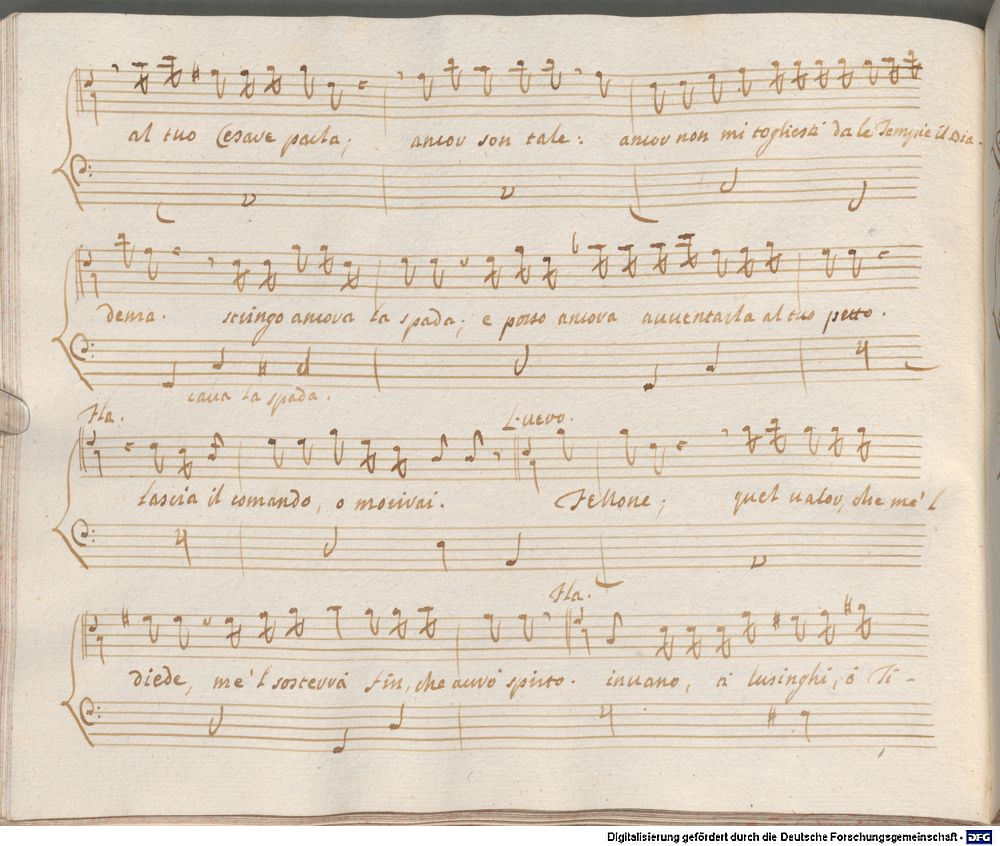 al tuo Cesare parla; ancor son tale: ancor non mi togliesti da le Tempie il Dia-
dema. stringo ancora la spada; e posso ancora avventarla al tuo petto.
cava la spada.
Fla. L. vero.
lascia il comando, o morirai. Fellone; quel valor, che me'l
Fla.
diede, me'l sosterrà fin, che avrò spirto. invano, ti lusinghi, ò Ti-
Digitalisierung gefördert durch die Deutsche Forschungsgemeinschaft - DFG